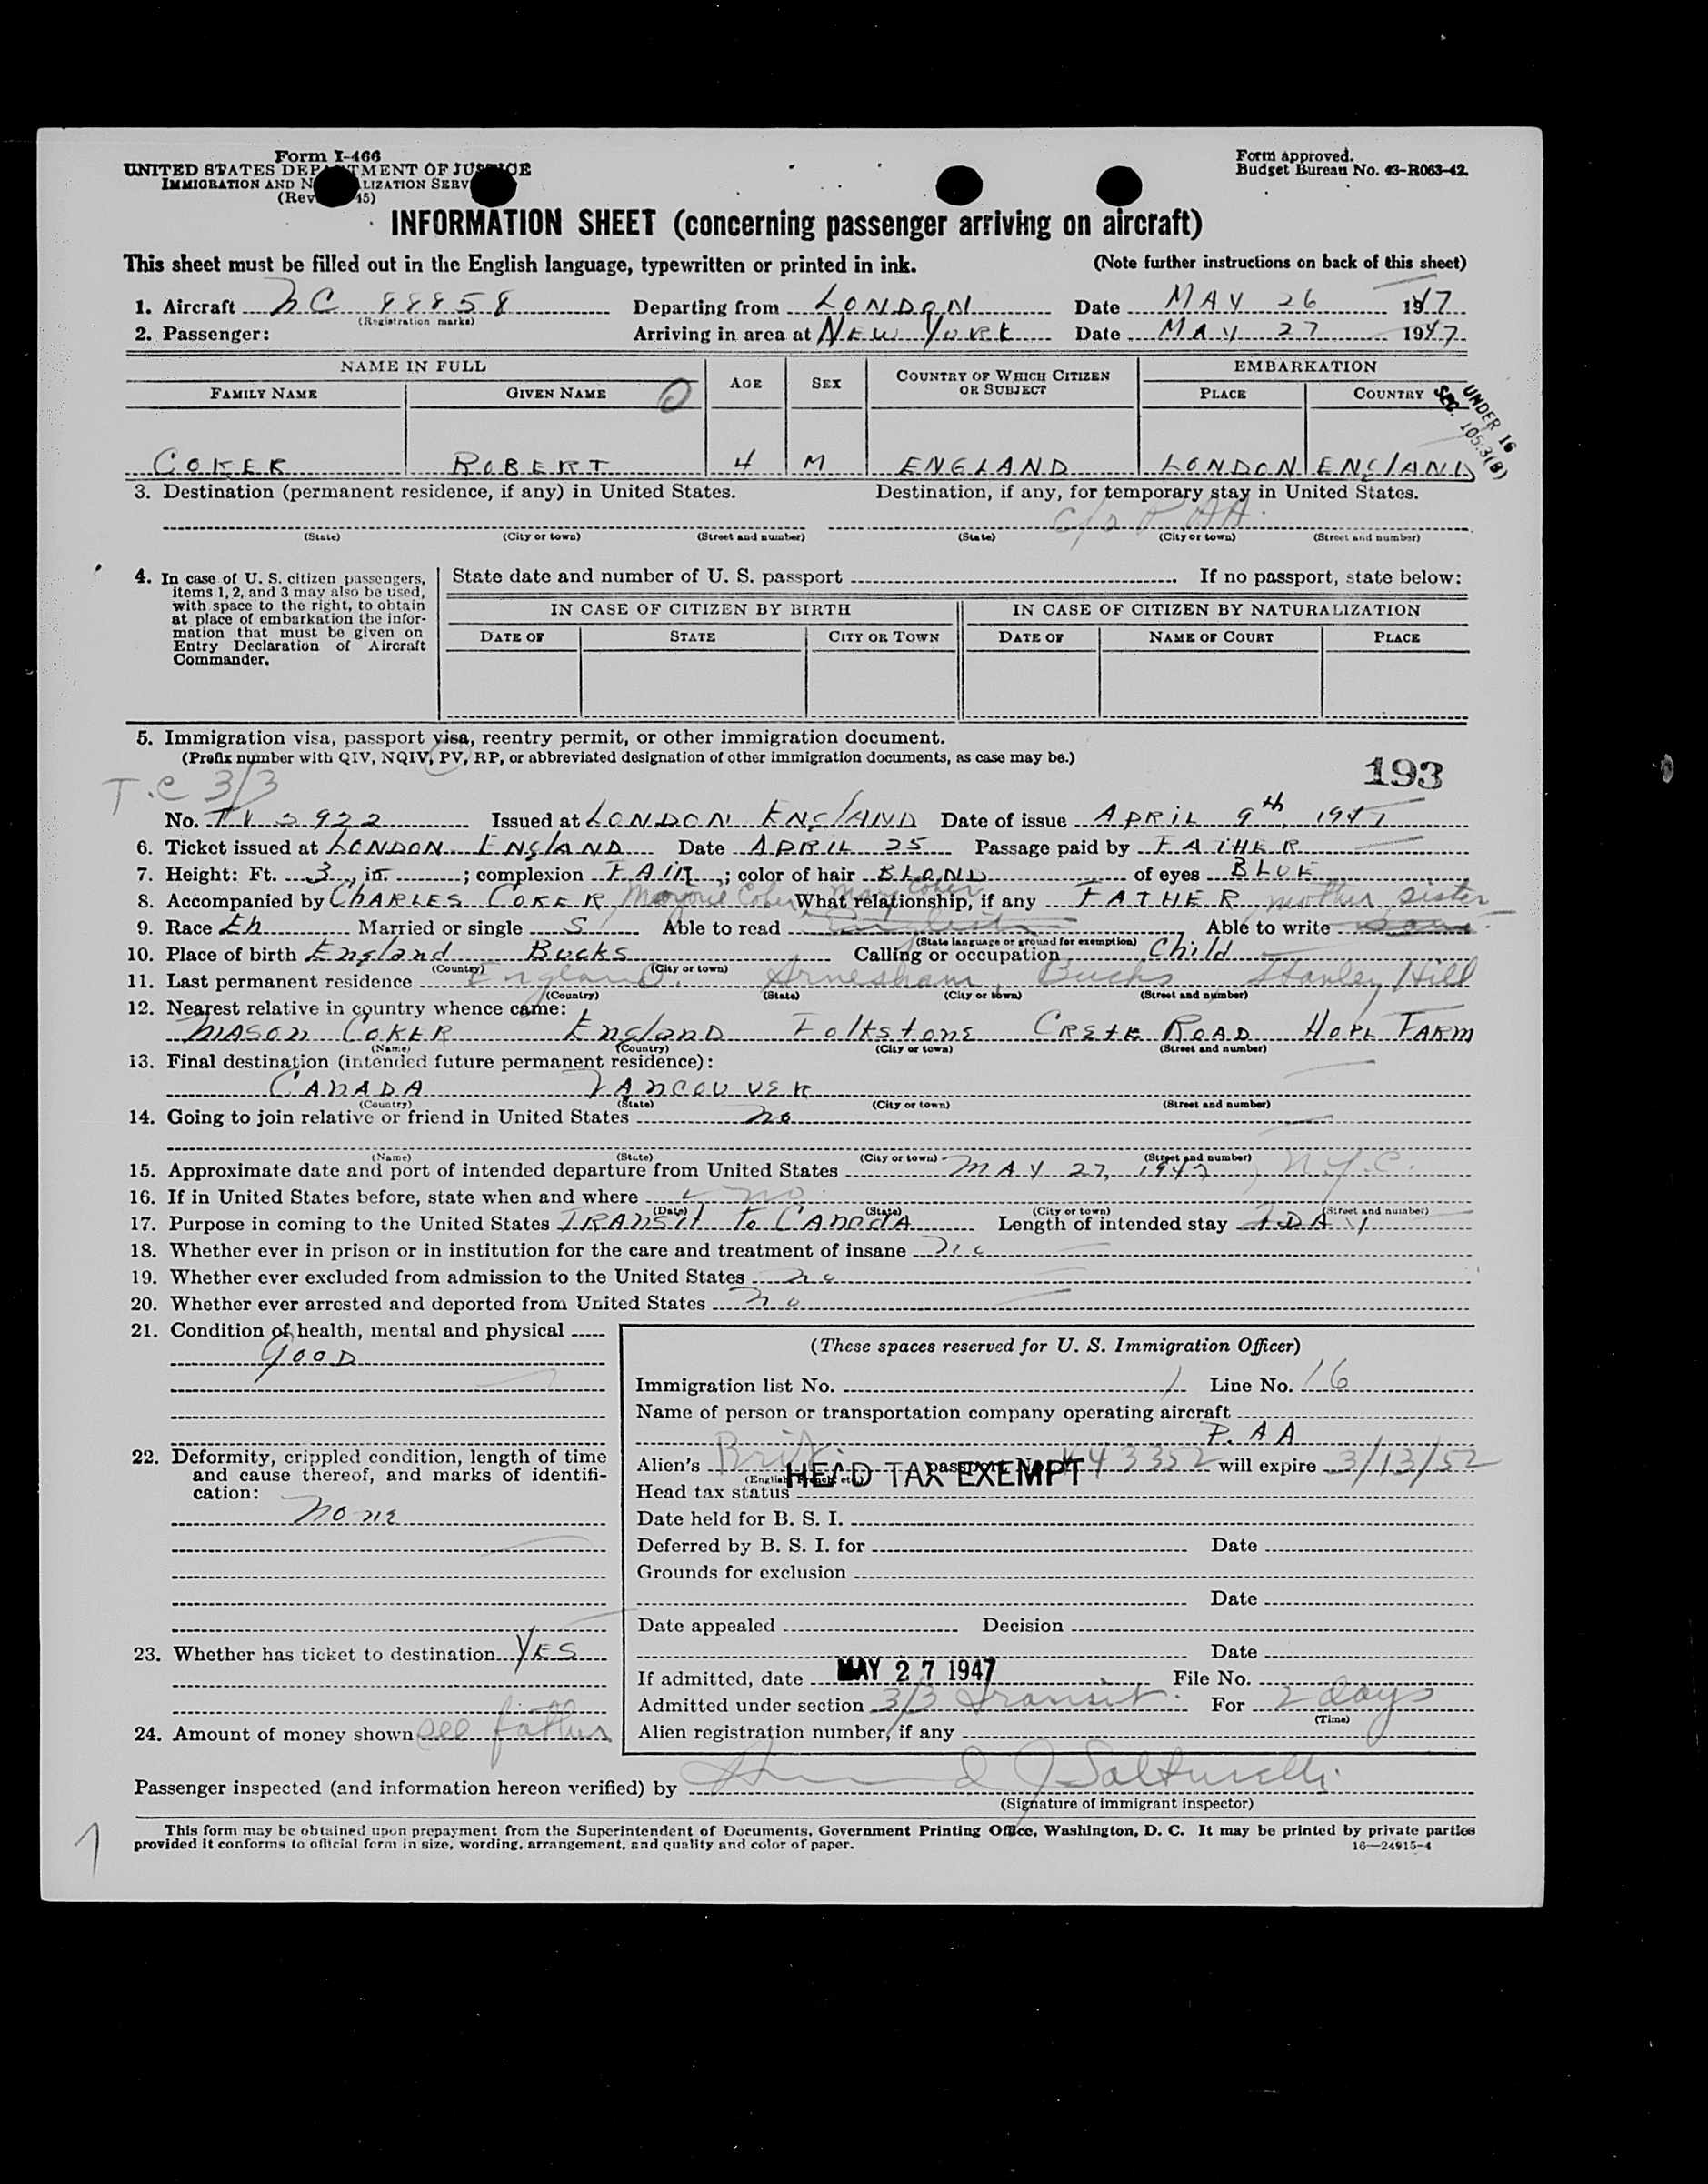 Form I-466
UNITED STATES DEPARTMENT OF JUSTICE
IMMIGRATION AND NATURALIZATION SERV
(Rev. 45)
Form approved.
Budget Bureau No. 43-R063-42.
INFORMATION SHEET (concerning passenger arriving on aircraft)
This sheet must be filled out in the English language, typewritten or printed in ink. (Note further instructions on back of this sheet)
1. Aircraft NC 88858 Departing from LONDON Date MAY 26 1947
(Registration marks)
2. Passenger: Arriving in area at NEW YORK Date MAY 27 1947
NAME IN FULL
FAMILY NAME GIVEN NAME AGE SEX COUNTRY OF WHICH CITIZEN OR SUBJECT EMBARKATION
PLACE COUNTRY
UNDER 16
SEC. 105.3(B)
COKER ROBERT 4 M ENGLAND LONDON ENGLAND
3. Destination (permanent residence, if any) in United States. Destination, if any, for temporary stay in United States.
c/o P.A.A.
(State) (City or town) (Street and number) (State) (City or town) (Street and number)
4. In case of U. S. citizen passengers, items 1, 2, and 3 may also be used, with space to the right, to obtain at place of embarkation the information that must be given on Entry Declaration of Aircraft Commander.
State date and number of U. S. passport If no passport, state below:
IN CASE OF CITIZEN BY BIRTH IN CASE OF CITIZEN BY NATURALIZATION
DATE OF STATE CITY OR TOWN DATE OF NAME OF COURT PLACE
5. Immigration visa, passport visa, reentry permit, or other immigration document.
(Prefix number with QIV, NQIV, PV, RP, or abbreviated designation of other immigration documents, as case may be.)
193
T.C 3/3
No. 2922 Issued at LONDON ENGLAND Date of issue APRIL 9th, 1947
6. Ticket issued at LONDON ENGLAND Date APRIL 25 Passage paid by FATHER
7. Height: Ft. 3, in. ; complexion FAIR ; color of hair BLOND of eyes BLUE
8. Accompanied by CHARLES COKER Marjorie Coker Mary Coker What relationship, if any FATHER mother, sister
9. Race Eh Married or single S Able to read English Able to write
(State language or ground for exemption)
10. Place of birth England Bucks Calling or occupation Child
(Country) (City or town)
11. Last permanent residence England. Amesham Bucks Stanley Hill
(Country) (State) (City or town) (Street and number)
12. Nearest relative in country whence came:
MASON COKER England Folkstone CRETE ROAD HOPE FARM
(Name) (Country) (City or town) (Street and number)
13. Final destination (intended future permanent residence):
CANADA VANCOUVER
(Country) (State) (City or town) (Street and number)
14. Going to join relative or friend in United States no
(Name) (State) (City or town) (Street and number)
15. Approximate date and port of intended departure from United States MAY 27, 1947, N.Y.C.
16. If in United States before, state when and where no
(Date) (State) (City or town) (Street and number)
17. Purpose in coming to the United States TRANSIT To CANADA Length of intended stay 1 DAY
18. Whether ever in prison or in institution for the care and treatment of insane no
19. Whether ever excluded from admission to the United States no
20. Whether ever arrested and deported from United States no
21. Condition of health, mental and physical
GOOD
22. Deformity, crippled condition, length of time and cause thereof, and marks of identification:
None
23. Whether has ticket to destination YES
24. Amount of money shown see father
(These spaces reserved for U. S. Immigration Officer)
Immigration list No. 1 Line No. 16
Name of person or transportation company operating aircraft
P. A A
Alien's Brit. passport No. 443352 will expire 3/13/52
(English, French, etc.)
Head tax status HEAD TAX EXEMPT
Date held for B. S. I.
Deferred by B. S. I. for Date
Grounds for exclusion
Date
Date appealed Decision
Date
If admitted, date MAY 27 1947 File No.
Admitted under section 3/3 Transit. For 2 days
(Time)
Alien registration number, if any
Passenger inspected (and information hereon verified) by
(Signature of immigrant inspector)
This form may be obtained upon prepayment from the Superintendent of Documents, Government Printing Office, Washington, D. C. It may be printed by private parties
provided it conforms to official form in size, wording, arrangement, and quality and color of paper. 16—24915-4